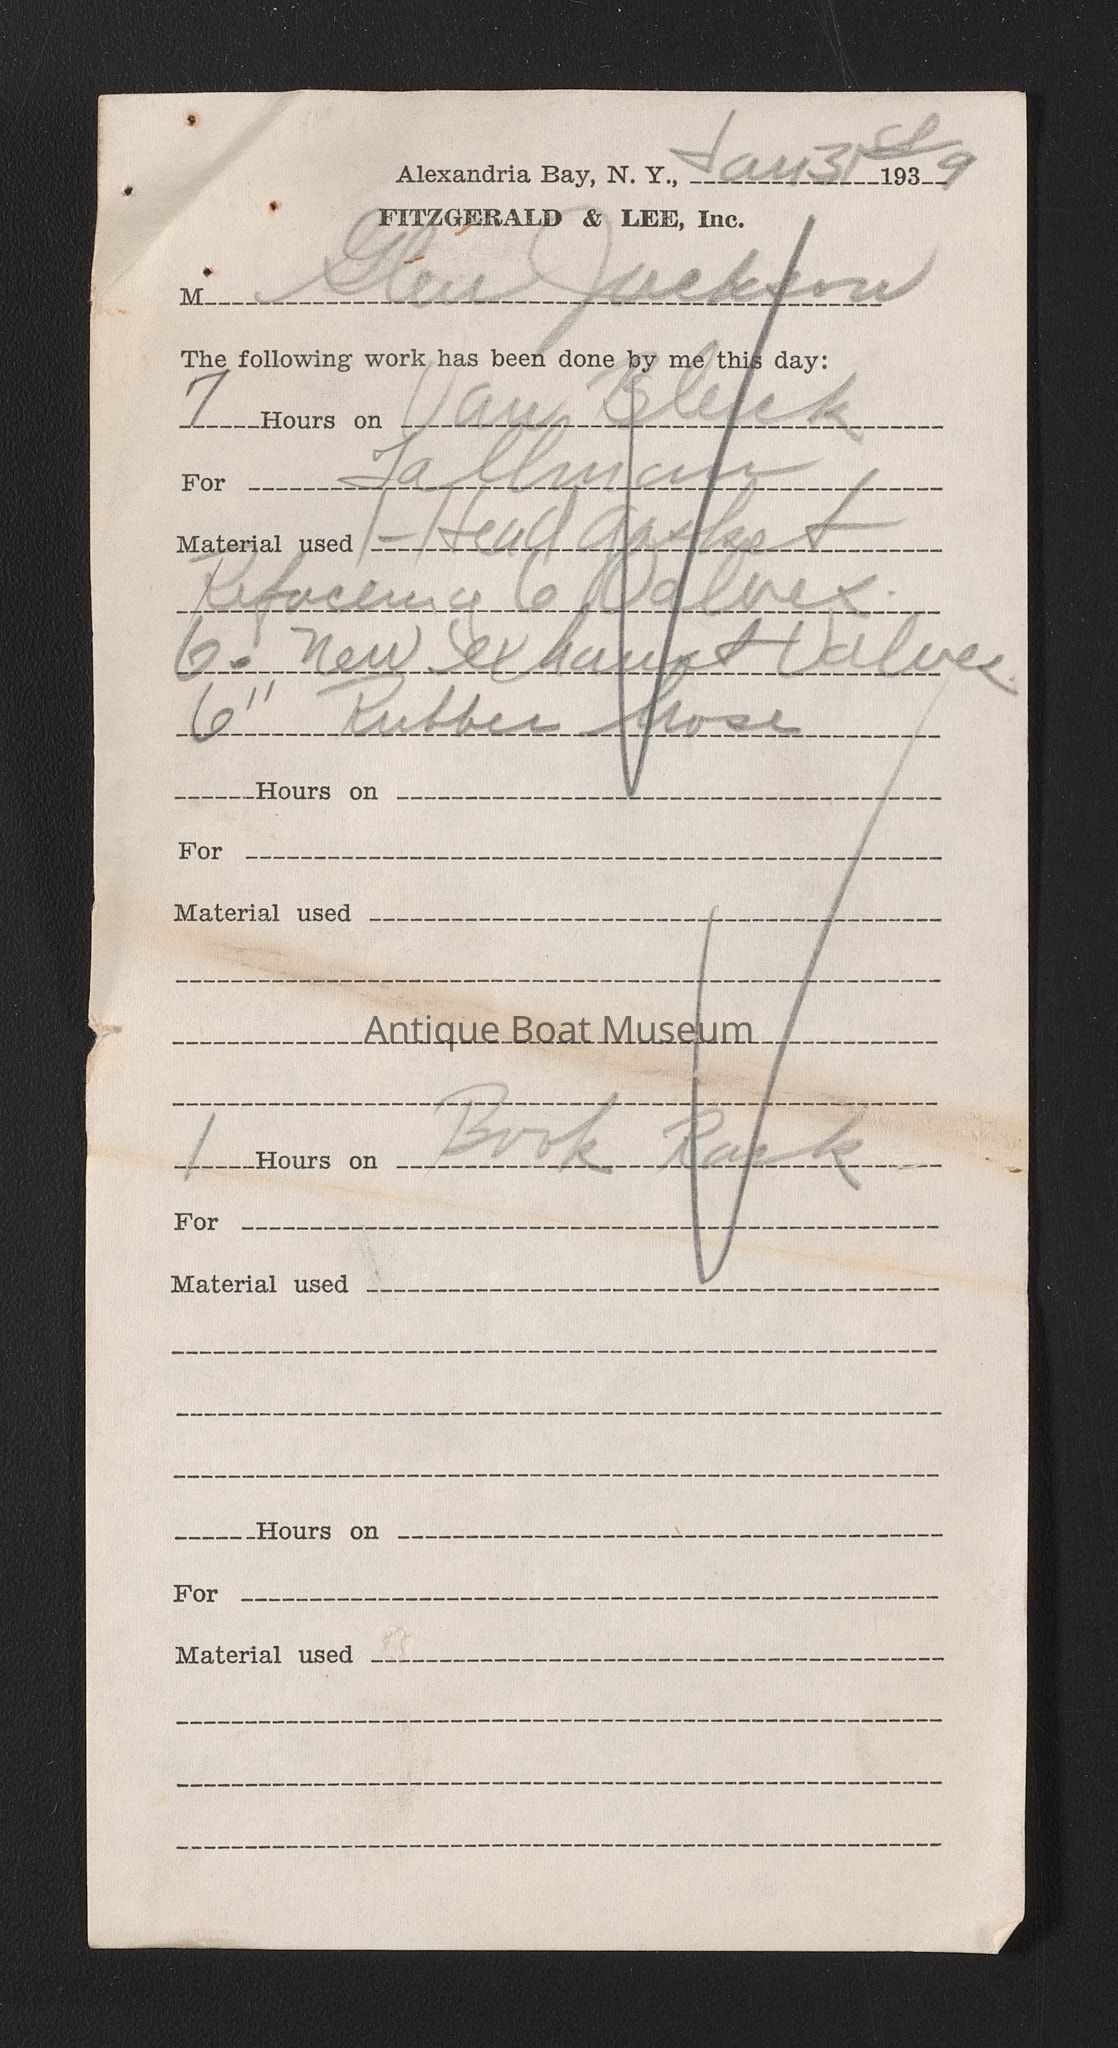 Alexandria Bay, N. Y., Jan 31st 1939
FITZGERALD & LEE, Inc.
M Glen Jackson
The following work has been done by me this day:
7 Hours on Van Blerck
For Tallman
Material used 1- Head gasket
Refaceing 6 Valves.
6. New exhaust Valves.
6" Rubber hose
Hours on
For
Material used
Antique Boat Museum
1 Hours on Book Rack
For
Material used
Hours on
For
Material used